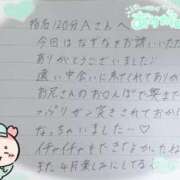 指名120分Aさんへ
今日はなずなをお誘いいただき
ありがとうございました♪
遠い中会いに来てくれてありの
お兄さんのおちんぽで奥まで
つぷりガン突きされておかしく
なっちゃいました〜♡
イチャイチャもできてよかったね
また4月楽しみにしてる